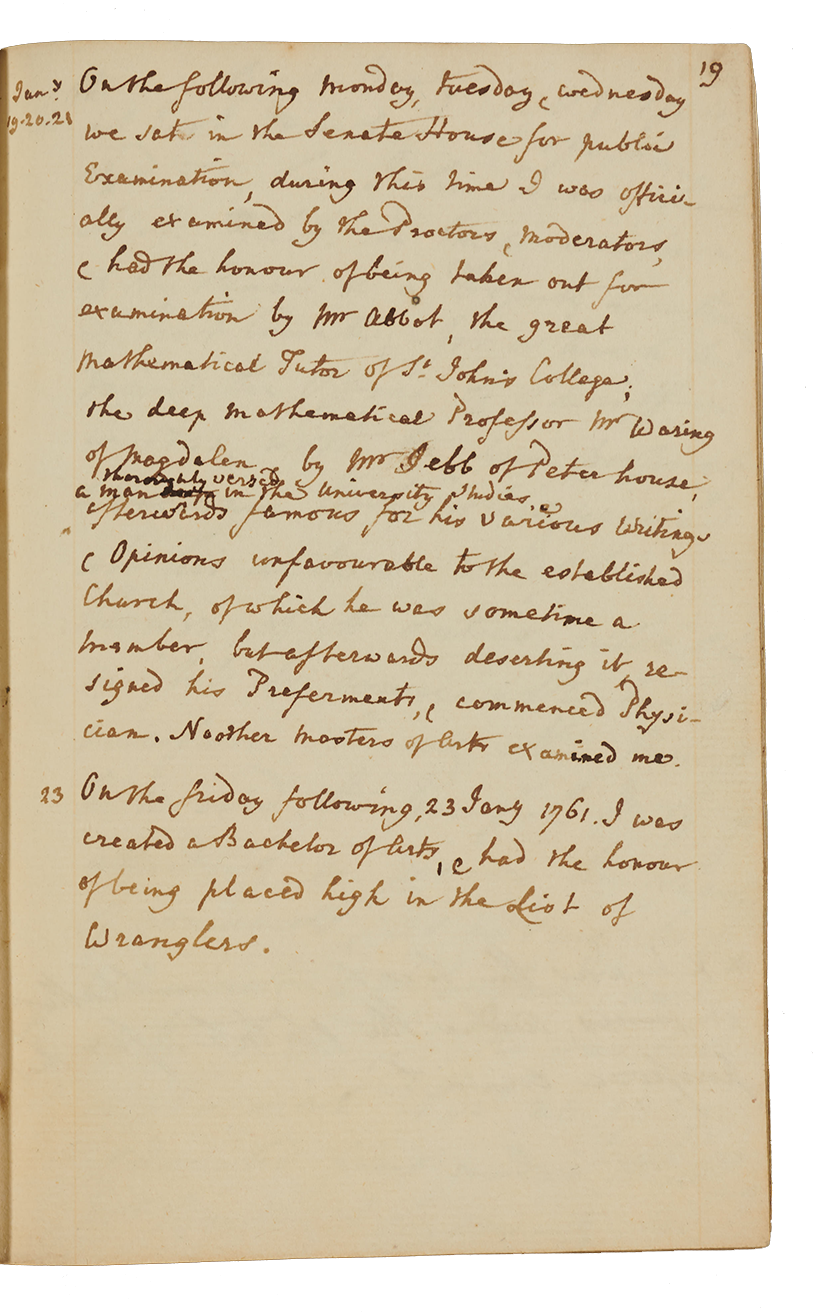 19
Jany.
19.20.21
On the following Monday, Tuesday, & Wednesday
we sate in the Senate House for public
Examination, during this time I was offici-
ally examined by the Proctors, & Moderators,
& had the honour of being taken out for
examination by Mr Abbot, the great
Mathematical Tutor of St. John's College;
the deep Mathematical Professor Mr Waring
of Magdalen, by Mr Jebb of Peterhouse,
thoroughly versed
a man in the University Studies &
afterwards famous for his various Writings
& Opinions unfavourable to the established
Church, of which he was sometime a
Member, but afterwards deserting it, re-
signed his Preferments, & commenced Physi-
cian. No other Masters of Arts examined me.
23
On the friday following, 23 Jany 1761. I was
created a Bachelor of Arts, & had the honour
of being placed high in the List of
Wranglers.